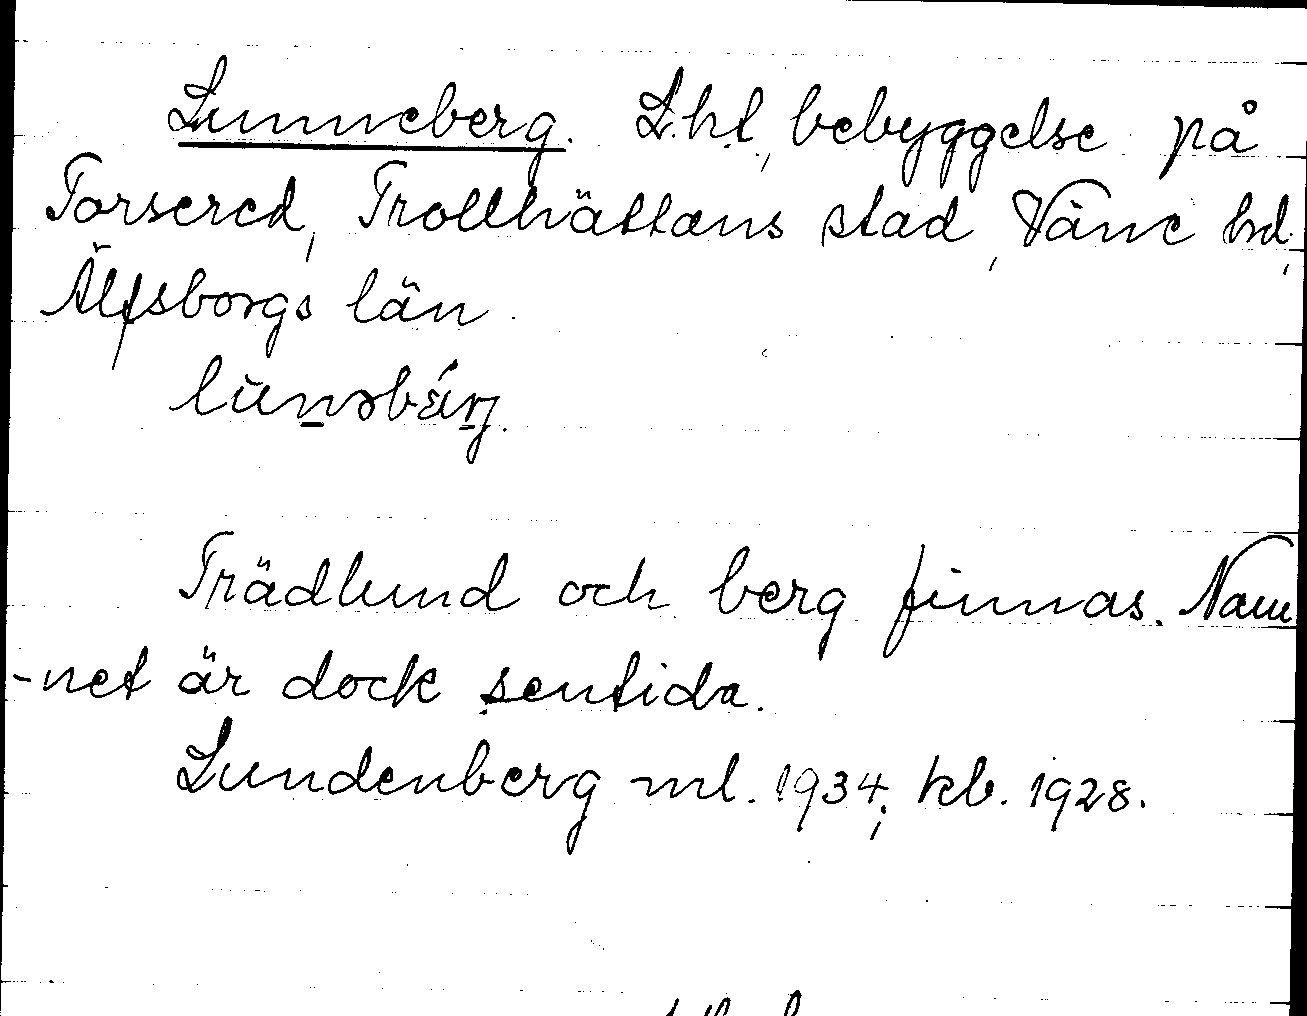 Lunneberg. L.h.t, bebyggelse på
Torsered, Trollhättans stad, Väne hd,
Älfsborgs län.
lùnəbǽrj.
Trädlund och berg finnas. Nam
-net är dock sentida.
Lundenberg ml. 1934; kb. 1928.